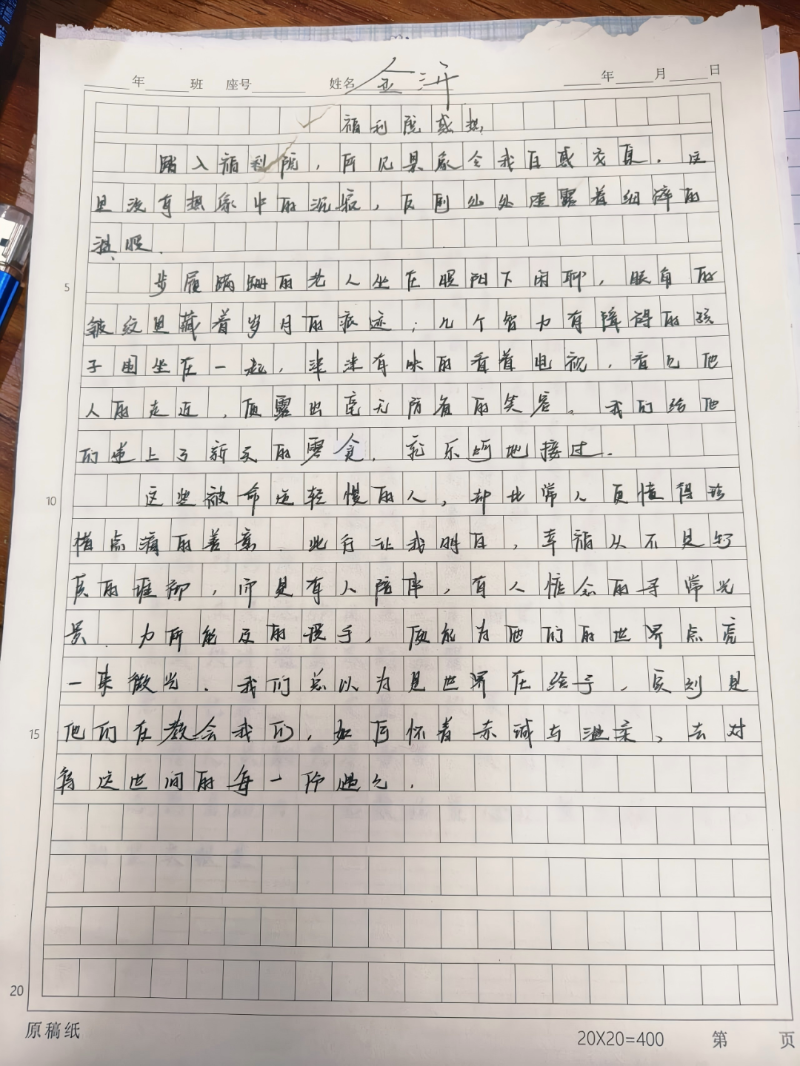 年 班 座号 姓名 金 年 月 日
福利院感想
踏入福利院，所见景象令我百感交集，这
里没有想象中的沉寂，反倒处处透露着细碎的
温暖．
5 步履蹒跚的老人坐在暖阳下闲聊，眼角的
皱纹里藏着岁月的痕迹；几个智力有障碍的孩
子围坐在一起，津津有味的看着电视，看见他
人的走近，便露出毫无防备的笑容。我们给他
们递上了新买的零食，乐呵地接过．
10 这些被命运轻慢的人，却比常人更懂得
点滴的善意．此行让我明白，幸福从不是
的堆砌，而是有人陪伴，有人惦念的寻常光
景．力所能及的援手，便能为他们的世界点亮
一束微光．我们总以为是世界在给予，实则是
15 他们在教会我们，如何怀着赤诚与温柔，去对
待这世间的每一份遇见．
20
原稿纸 20X20=400 第 页